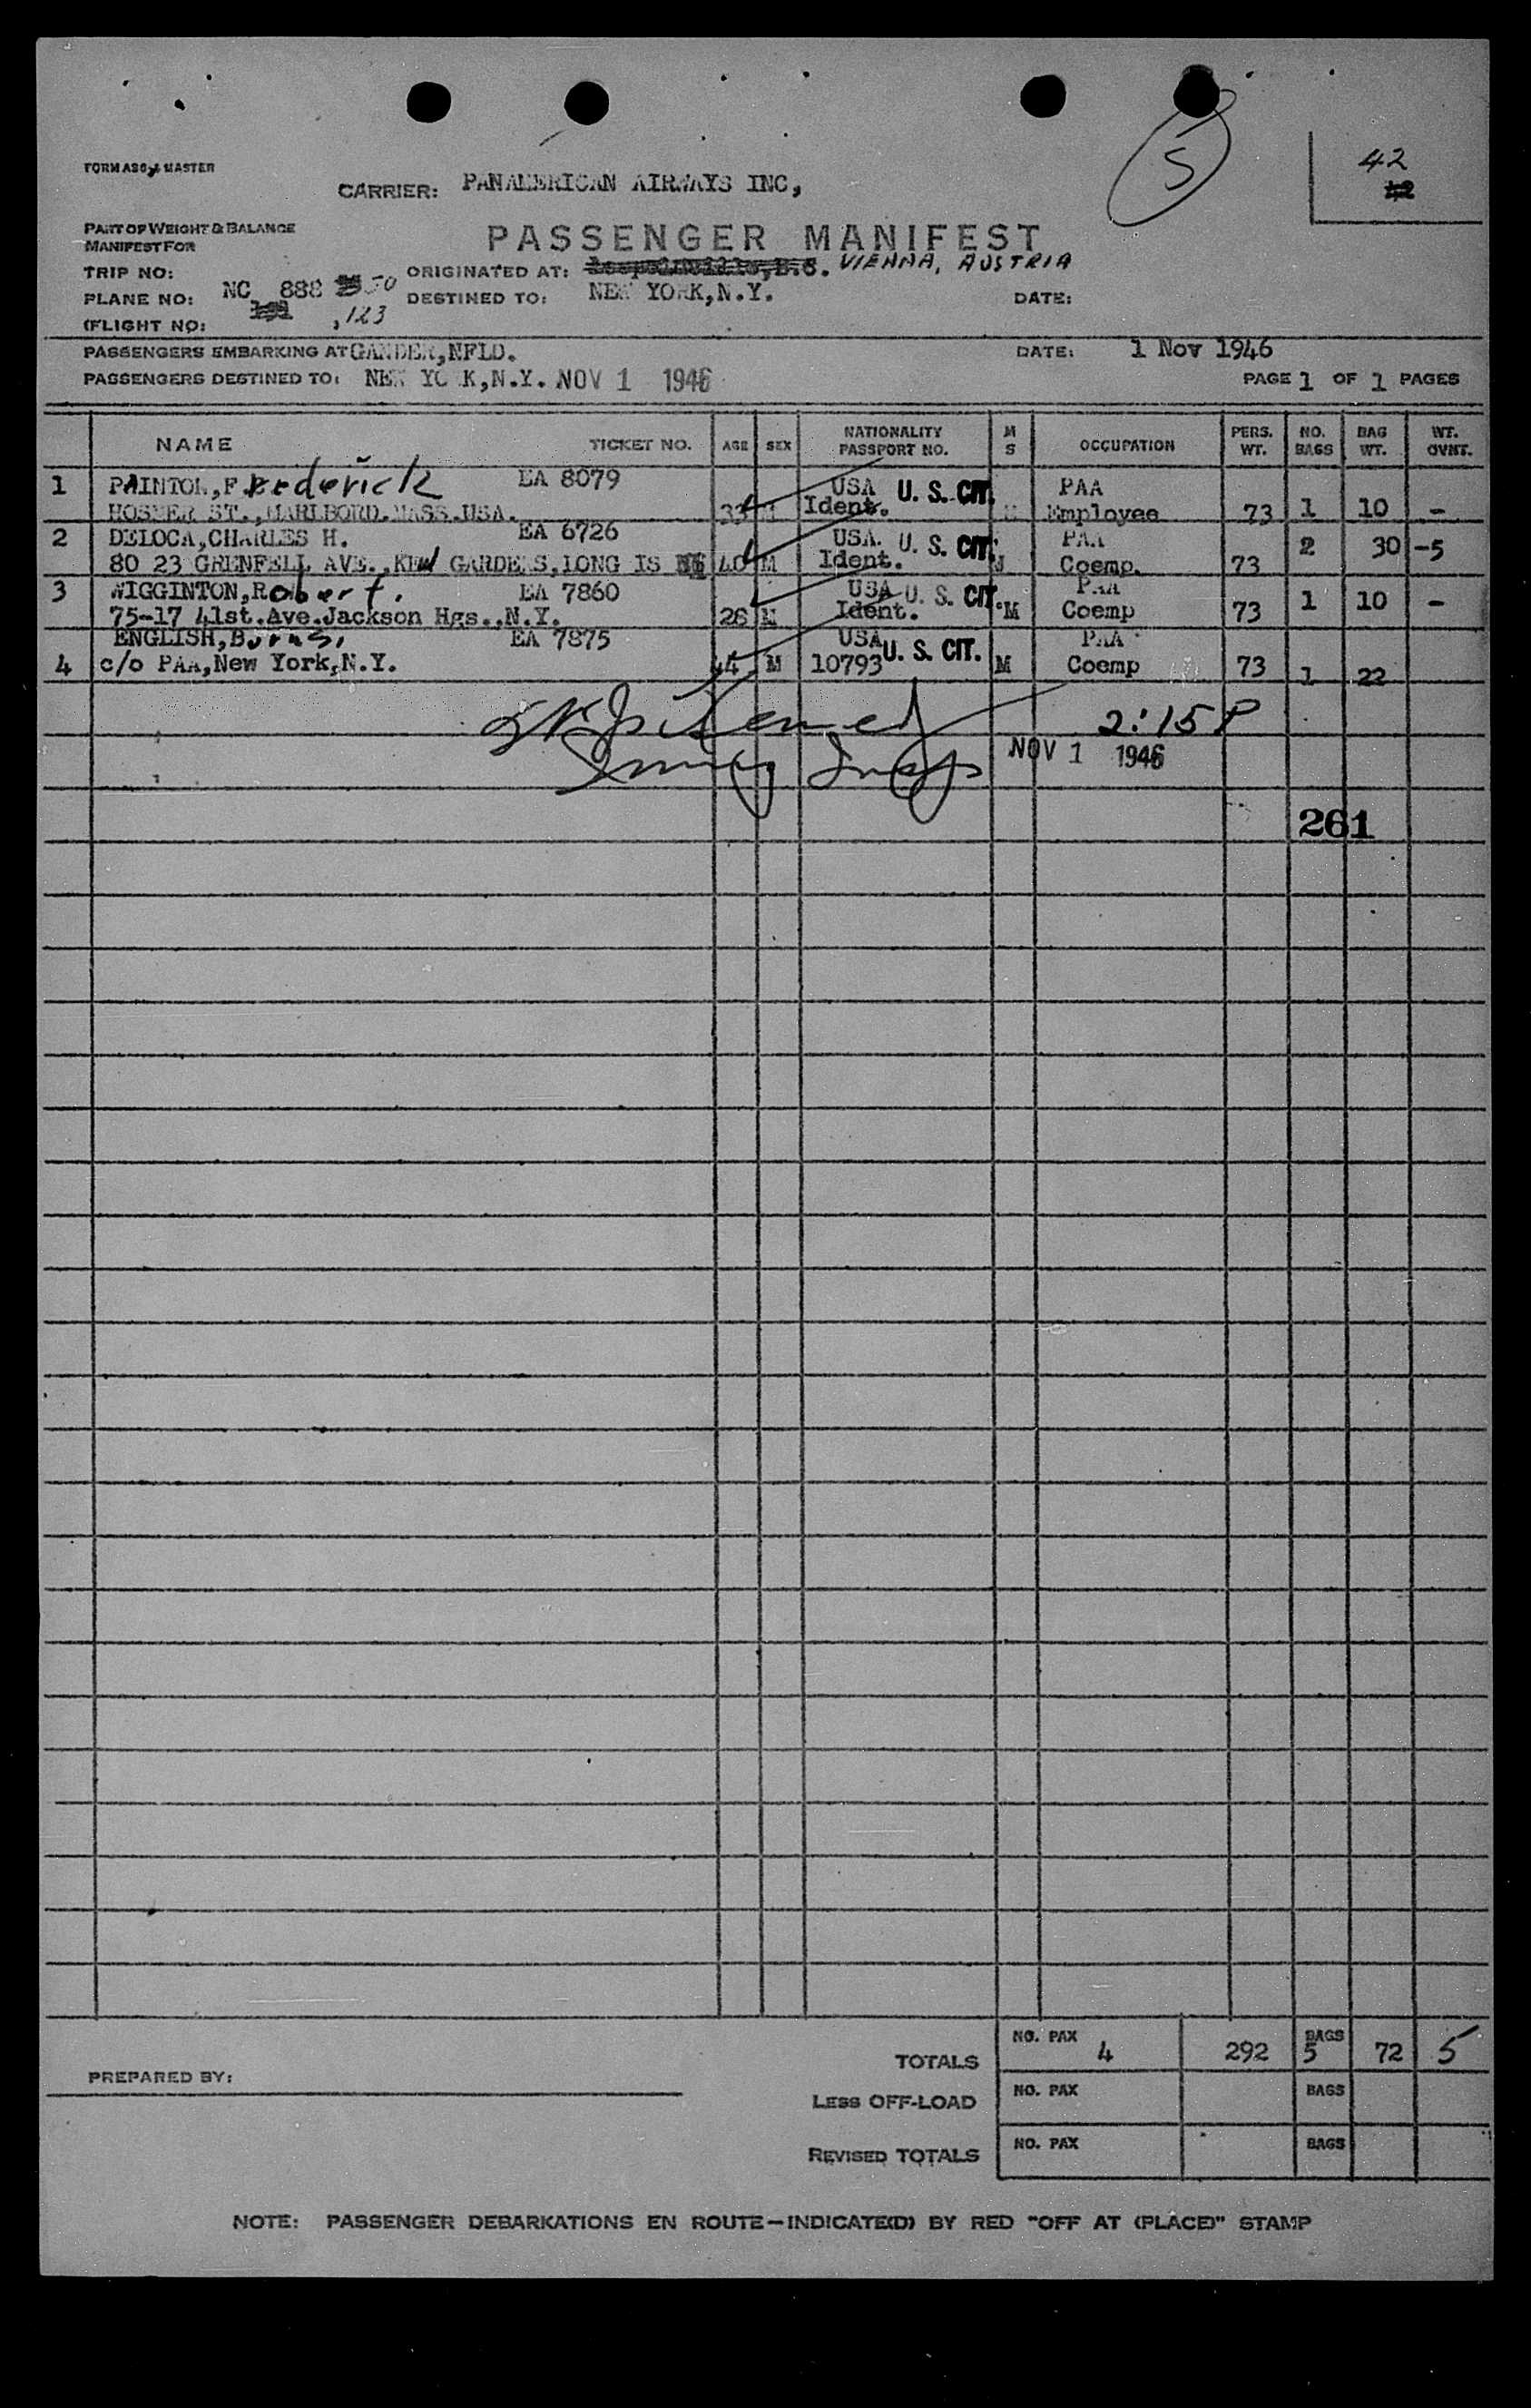 5
42
FORM ASSY MASTER
CARRIER: PANAMERICAN AIRWAYS INC,
PART OF WEIGHT & BALANCE
MANIFEST FOR
PASSENGER MANIFEST
TRIP NO:
ORIGINATED AT: VIENNA, AUSTRIA
PLANE NO: NC 888 50
DESTINED TO: NEW YORK,N.Y.
DATE:
(FLIGHT NO: ,123
PASSENGERS EMBARKING AT GANDER,NFLD.
DATE: 1 Nov 1946
PASSENGERS DESTINED TO: NEW YO K,N.Y. NOV 1 1946
PAGE 1 OF 1 PAGES
NAME TICKET NO. AGE SEX NATIONALITY PASSPORT NO. M S OCCUPATION PERS. WT. NO. BAGS BAG WT. WT. OVNT.
1 PAINTON,Frederick EA 8079 USA U. S. CIT. PAA
HOSMER ST.,MARLBORO.MASS.USA. 33 M Ident. Employee 73 1 10 -
2 DELOCA,CHARLES H. EA 6726 USA. U. S. CIT. PAA 2 30 -5
80 23 GRENFELL AVE.,KEW GARDENS,LONG IS 40 M Ident. Coemp. 73
3 WIGGINTON,Robert. EA 7860 USA U. S. CIT. PAA 1 10 -
75-17 41st.Ave.Jackson Hgs.,N.Y. 26 M Ident. M Coemp 73
ENGLISH,Burns, EA 7875 USA U. S. CIT. PAA
4 c/o PAA,New York,N.Y. 44 M 10793 M Coemp 73 1 22
2:15 P
Immig Insp
NOV 1 1946
261
TOTALS NO. PAX 4 292 BAGS 5 72 5
PREPARED BY:
LESS OFF-LOAD NO. PAX BAGS
REVISED TOTALS NO. PAX BAGS
NOTE: PASSENGER DEBARKATIONS EN ROUTE—INDICATE(D) BY RED "OFF AT (PLACE)" STAMP